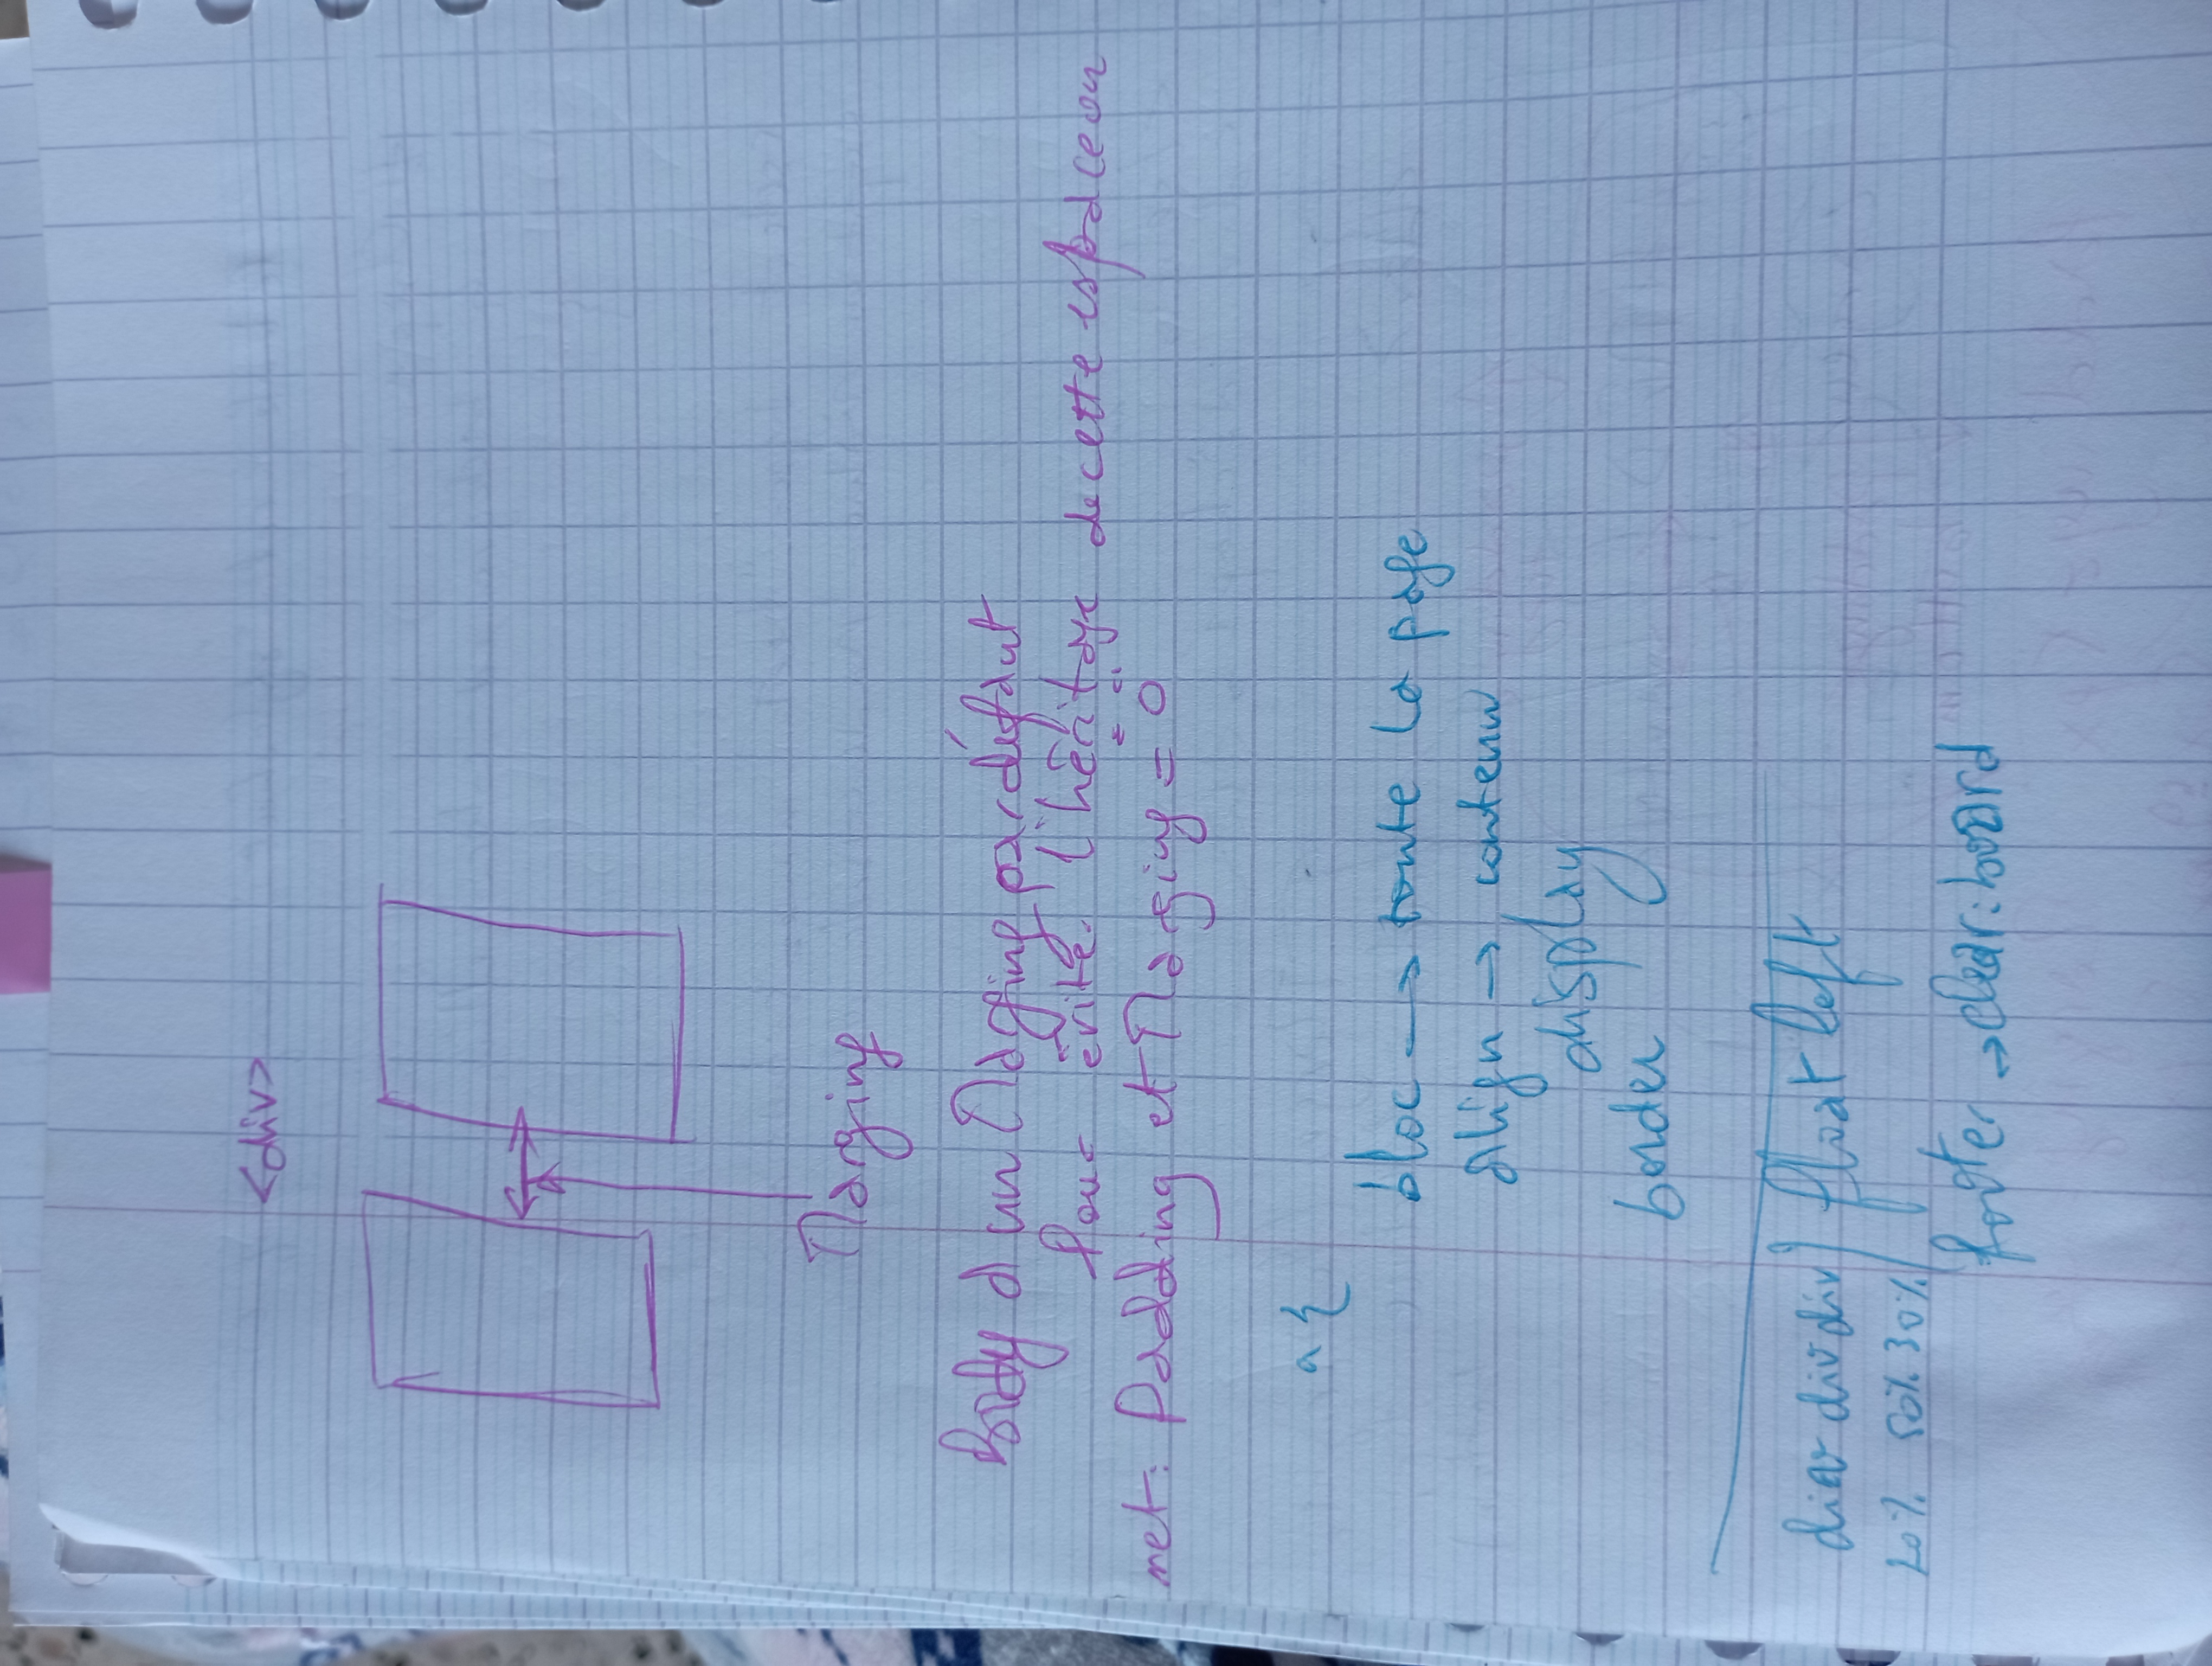 <div>
Marging
Body a un Marging par défaut
Pour évite. l'héritage de cette espace on
met: Padding et Marging = 0
a {
bloc → toute la page
align → contenu
display
border
div div div | float left
20% 50% 30%
footer → clear: board